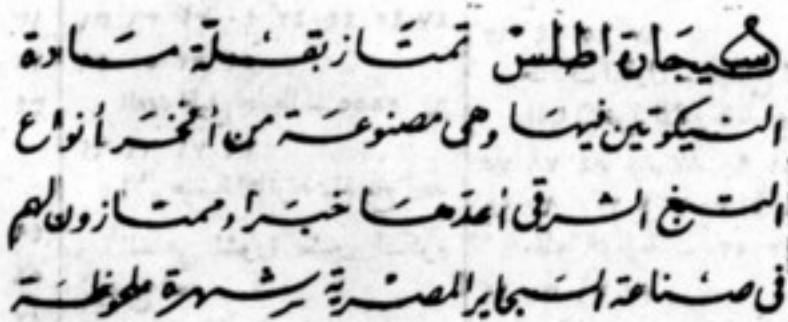 سيجارة اطلس تمتاز بقلة مادة
النيكوتين فيها وهى مصنوعة من أفخر أنواع
التبغ الشرقى أعدها خبراء ممتازون لهم
فى صناعة السجاير المصرية شهرة ملحوظة